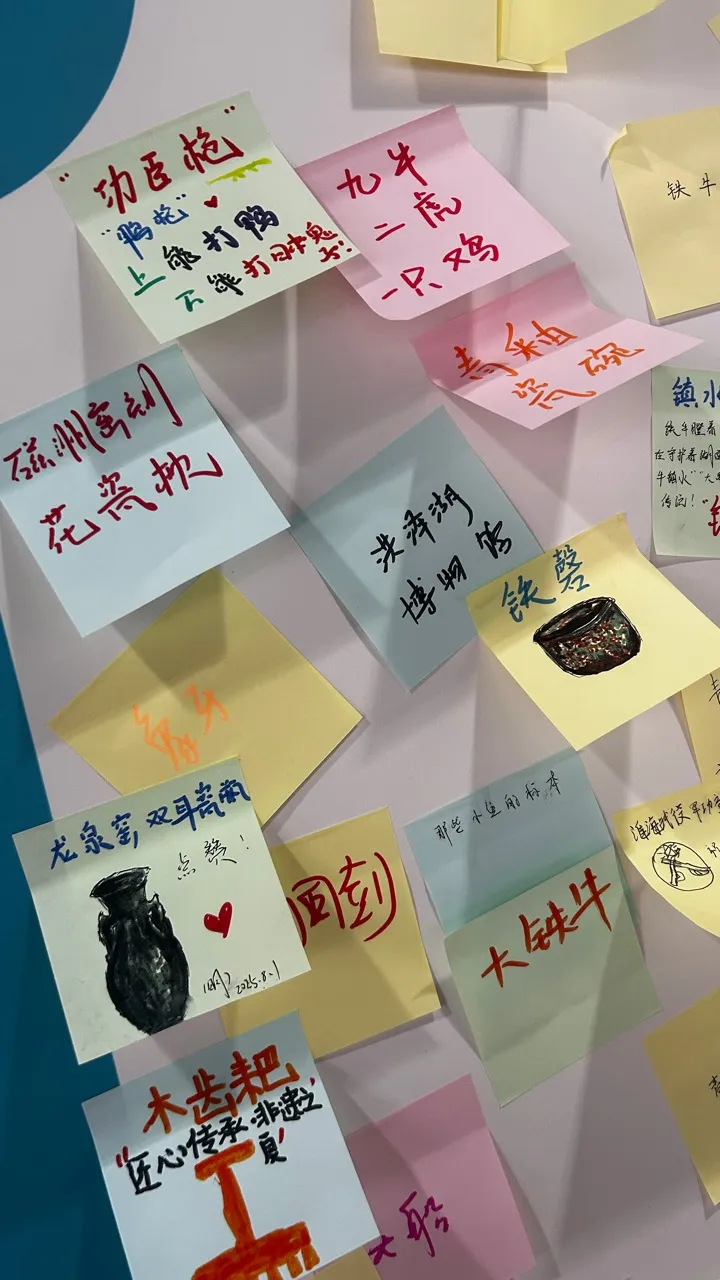 "功臣枪"
"鸭枪"
上能打鸭
下能打日本鬼子!
九牛
二虎
一只鸡
铁牛
青釉
瓷碗
镇水
磁州窑刻
花瓷枕
洪泽湖
博物馆
铁磬
龙泉窑双耳瓷瓶
点赞!
2025.8.1
那些小鱼的标本
大铁牛
淮海战役
木齿耙
"匠心传承·非遗之夏"
大船